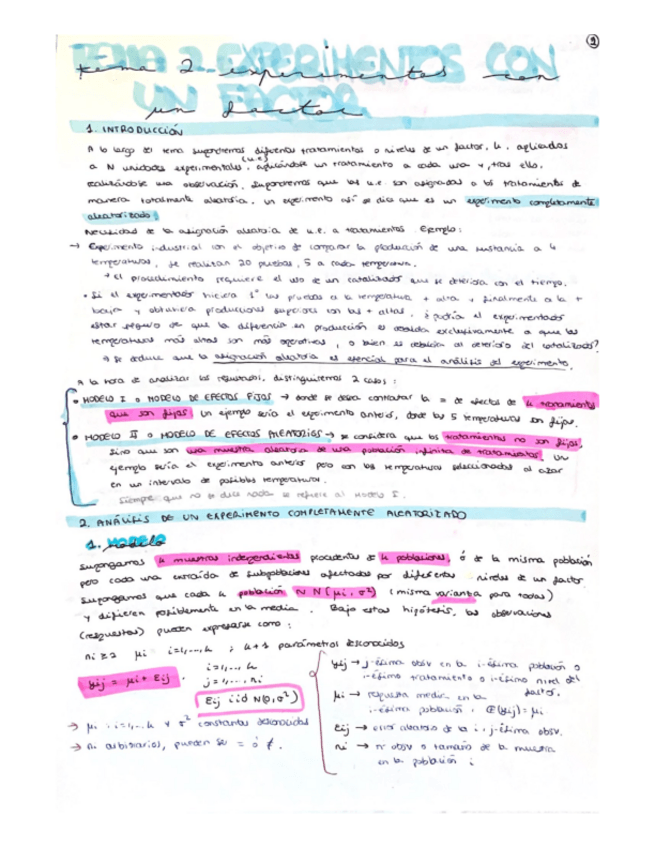 2
TEMA 2. EXPERIMENTOS CON
UN FACTOR
tema 2 experimentos con
un factor
1. INTRODUCCIÓN
A lo largo del tema supondremos diferentes tratamientos o niveles de un factor, k, aplicados
a N unidades experimentales (u.e), aplicándose un tratamiento a cada una y, tras ello,
realizándose una observación. Supondremos que las u.e. son asignadas a los tratamientos de
manera totalmente aleatoria. Un experimento así se dice que es un experimento completamente
aleatorizado.
Necesidad de la asignación aleatoria de u.e. a tratamientos. Ejemplo:
→ Experimento industrial con el objetivo de comparar la producción de una sustancia a 4
temperaturas, se realizan 20 pruebas, 5 a cada temperatura.
+ el procedimiento requiere el uso de un catalizador que se deteriora con el tiempo.
• Si el experimentador hiciera 1º las pruebas a la temperatura + alta y finalmente a la +
baja y obtuviera producciones superiores con las + altas. ¿podría el experimentador
estar seguro de que la diferencia en producción es debida exclusivamente a que las
temperaturas más altas son más operativas, o bien es debida al deterioro del catalizador?
→ se deduce que la asignación aleatoria es esencial para el análisis del experimento.
A la hora de analizar los resultados, distinguiremos 2 casos:
• MODELO I o MODELO DE EFECTOS FIJOS → donde se desea contrastar la = de efectos de k tratamientos
que son fijos. Un ejemplo sería el experimento anterior, donde las 5 temperaturas son fijas.
• MODELO II o MODELO DE EFECTOS ALEATORIOS → se considera que los tratamientos no son fijos,
sino que son una muestra aleatoria de una población infinita de tratamientos. Un
ejemplo sería el experimento anterior pero con las temperaturas seleccionadas al azar
en un intervalo de posibles temperaturas.
Siempre que no se dice nada se refiere al Modelo I.
2. ANÁLISIS DE UN EXPERIMENTO COMPLETAMENTE ALEATORIZADO
1. Modelo
Supongamos k muestras independientes procedentes de k poblaciones, ó de la misma población
pero cada una extraída de subpoblaciones afectadas por diferentes niveles de un factor.
Supongamos que cada k población ~ N(μi, σ²) (misma varianza para todas)
y difieren posiblemente en la media. Bajo estas hipótesis, las observaciones
(respuestas) pueden expresarse como:
ni ≥ 2 μi i=1,...,k ; k+1 parámetros desconocidos
yij = μi + εij. i=1,..., k
j=1,..., ni
εij iid N(0,σ²)
→ μi, i=1,...k y σ² constantes desconocidas
→ ni arbitrarios, pueden ser = ó ≠.
yij → j-ésima obsv en la i-ésima población o
i-ésimo tratamiento o i-ésimo nivel del
factor.
μi → respuesta media en la
i-ésima población. E(yij) = μi
εij → error aleatorio de la i,j-ésima obsv.
ni → nº obsv o tamaño de la muestra
en la población i